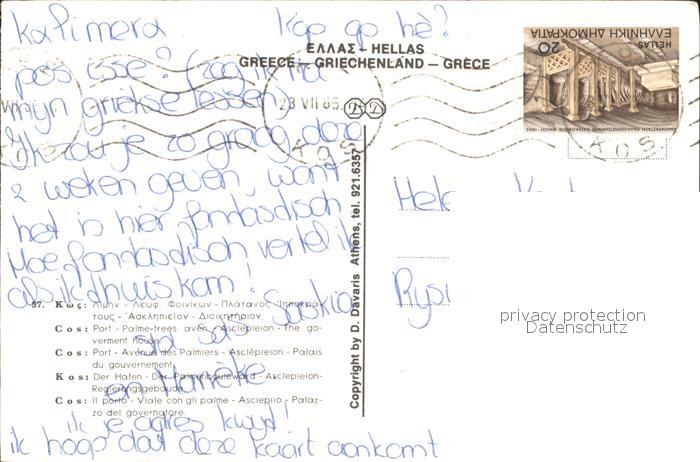 Kalimera Kop op hè?
ΕΛΛΑΣ - HELLAS
GREECE - GRIECHENLAND - GRÈCE
pos isse? (zeg ik na
mijn griekse lessen)
Ik zou je zo graag deze
2 weken geven, want
het is hier fandasdisch
Hoe fandasdisch vertel ik
als ik thuis kom!
Saskia
en Marrèke
ik je adres kwijt!
ik hoop dat deze kaart aankomt
57. Κως: Λιμήν - Λεωφ. Φοινίκων - Πλάτανος Ιπποκρά-
τους - Ἀσκληπιεῖον - Διοικητήριον
Cos: Port - Palme-trees aven. - Asclepieion - The go-
verment house
Cos: Port - Avenue des Palmiers - Asclépieion - Palais
du gouvernement
Kos: Der Hafen - Der Palmenboulevard - Asclepieion-
Regierungsgebäude
Cos: Il porto - Viale con gli palme - Asclepiio - Palaz-
zo del governatore.
Copyright by D. Davaris Athens, tel. 921.6357
23 VII 85
ΚΩΣ
KOS
KOS
20
ΕΛΛΗΝΙΚΗ ΔΗΜΟΚΡΑΤΙΑ
HELLAS
privacy protection
Datenschutz